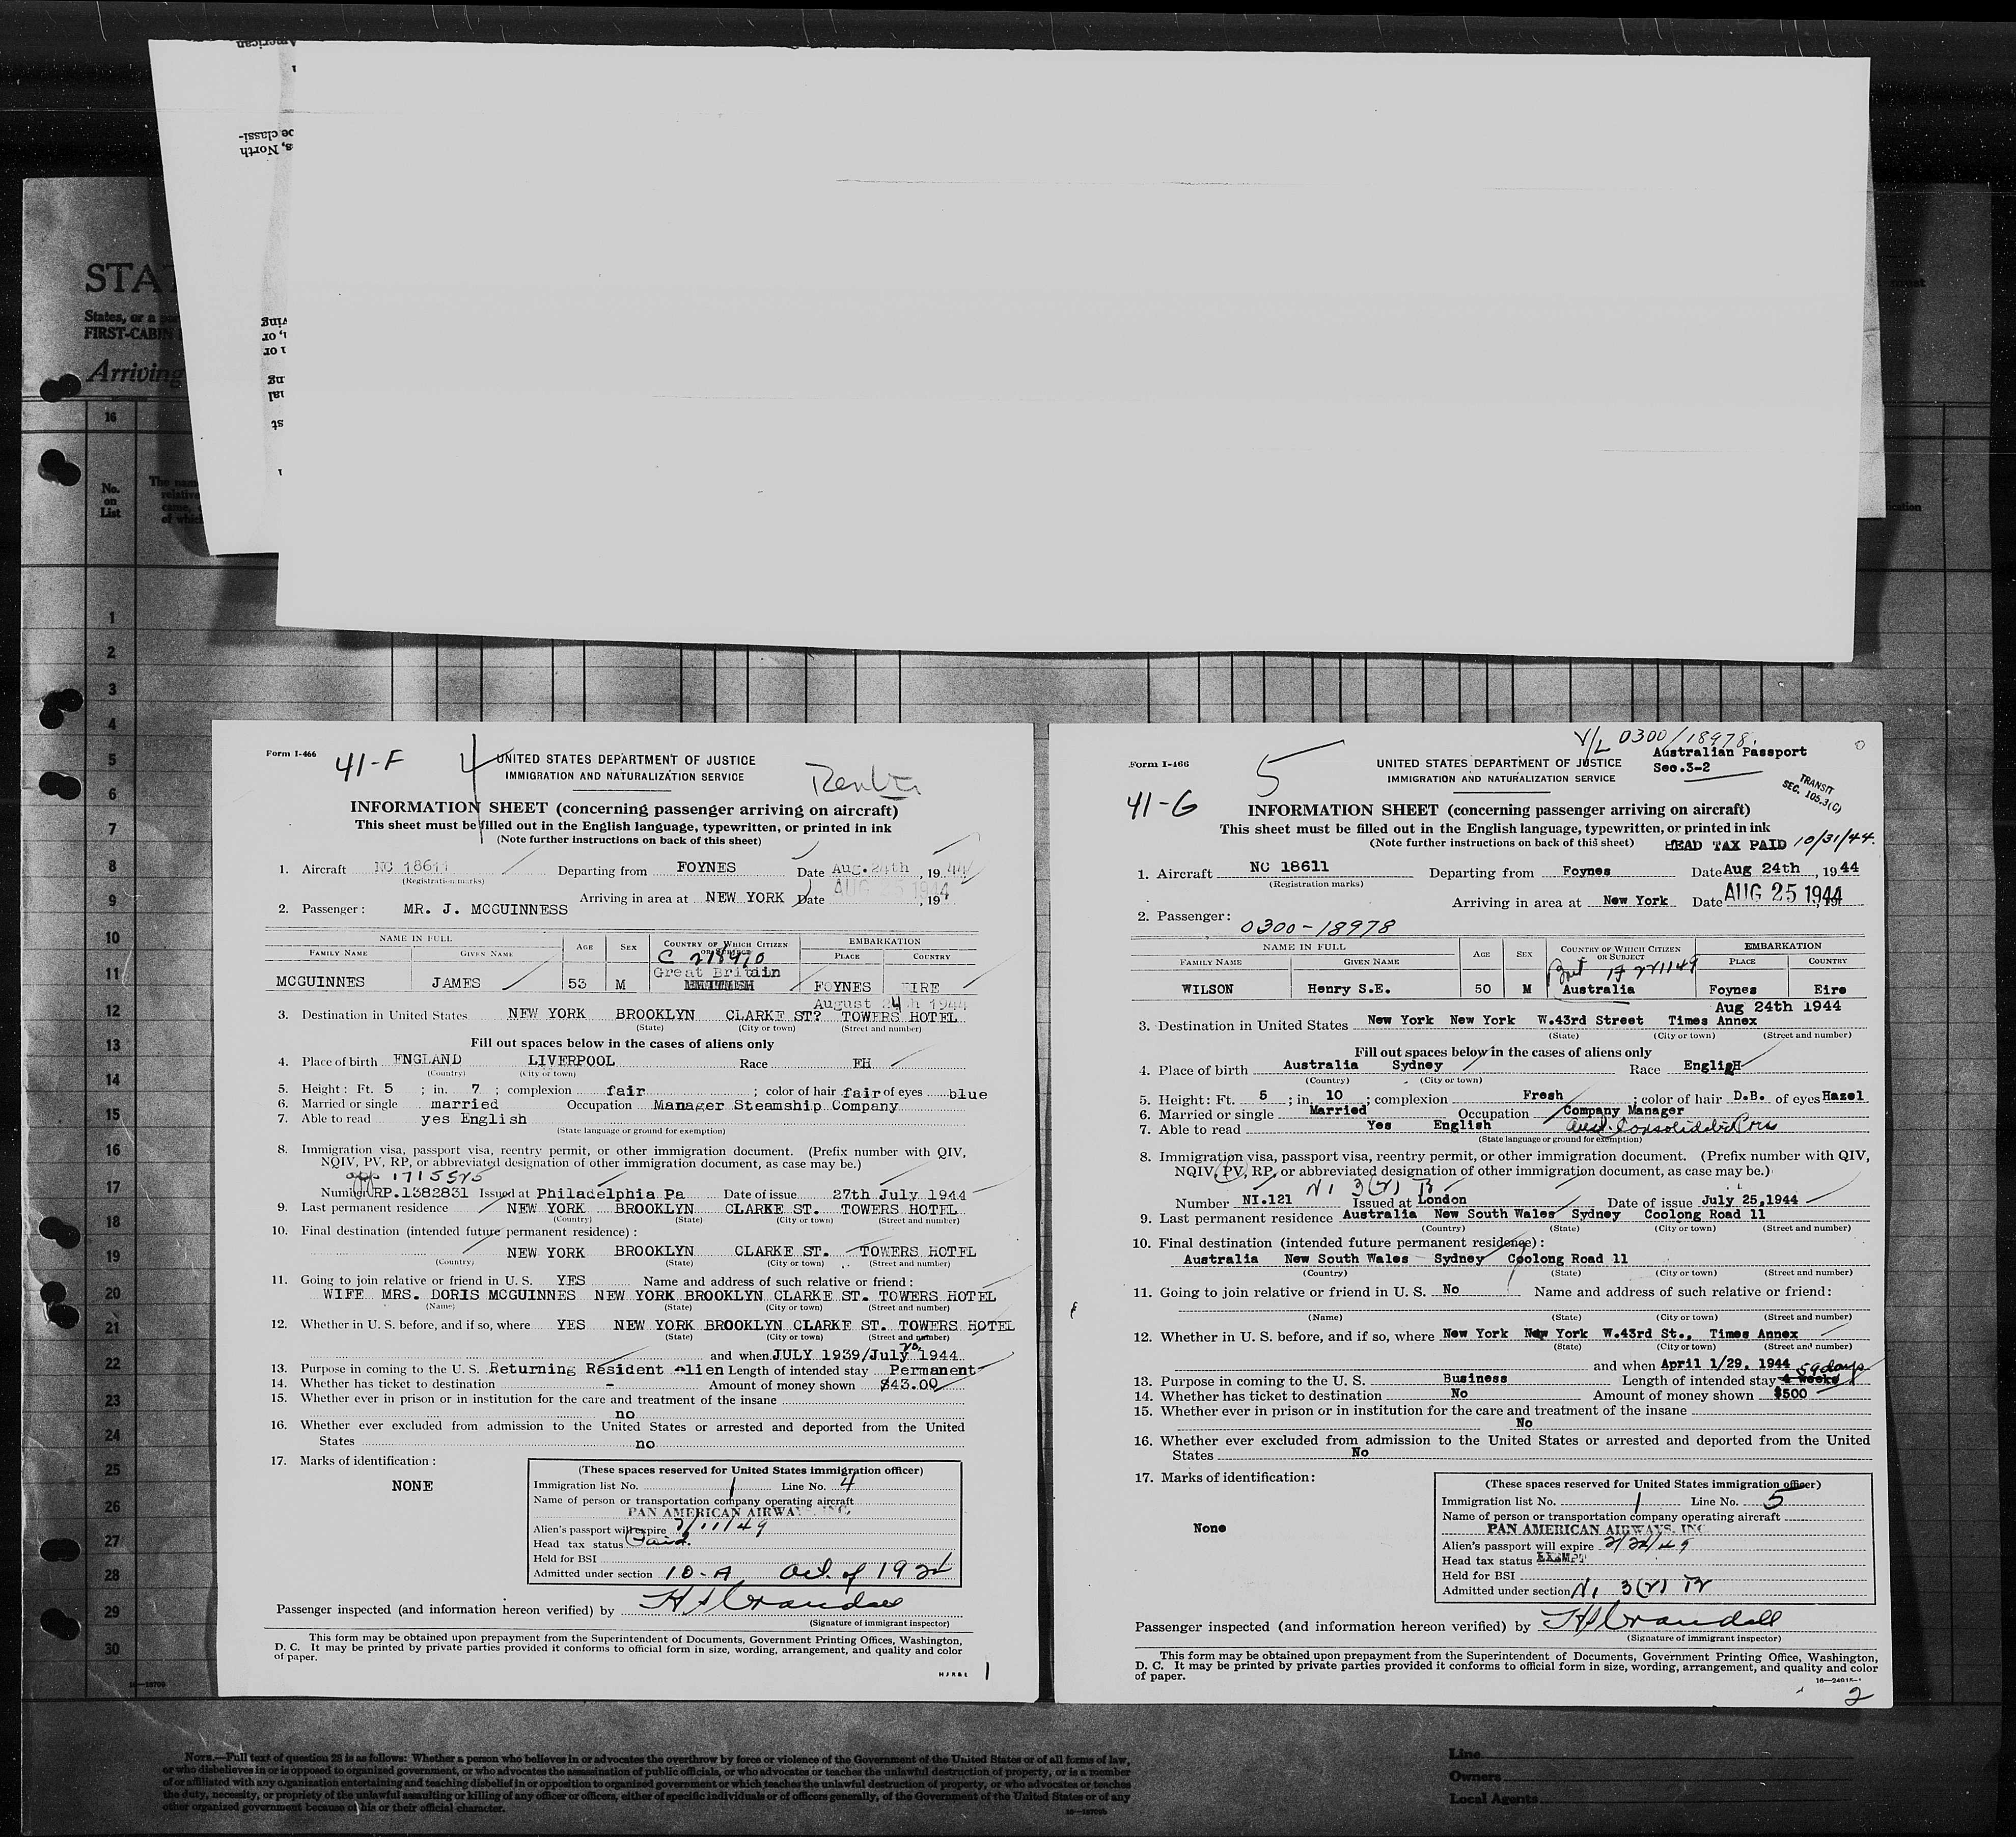 American
be classi-
s, North
STA
States, or a
FIRST-CABIN
Arriving
16
No.
on
List
The nam
relative
came,
of which
1
2
3
4
5
6
7
8
9
10
11
12
13
14
15
16
17
18
19
20
21
22
23
24
25
26
27
28
29
30
Form I-466
41-F
4
UNITED STATES DEPARTMENT OF JUSTICE
IMMIGRATION AND NATURALIZATION SERVICE
INFORMATION SHEET (concerning passenger arriving on aircraft)
This sheet must be filled out in the English language, typewritten, or printed in ink
(Note further instructions on back of this sheet)
1. Aircraft NC 18611 Departing from FOYNES Date Aug.24th, 1944
(Registration marks)
AUG 25 1944
Arriving in area at NEW YORK Date , 194
2. Passenger: MR. J. MCGUINNESS
NAME IN FULL AGE SEX COUNTRY OF WHICH CITIZEN OR SUBJECT EMBARKATION
FAMILY NAME GIVEN NAME PLACE COUNTRY
C 218470
Great Britain
MCGUINNES JAMES 53 M BRITISH FOYNES EIRE
August 24th 1944
3. Destination in United States NEW YORK BROOKLYN CLARKE ST? TOWERS HOTEL
(State) (City or town) (Street and number)
Fill out spaces below in the cases of aliens only
4. Place of birth ENGLAND LIVERPOOL Race EH
(Country) (City or town)
5. Height: Ft. 5 ; in. 7 ; complexion fair ; color of hair fair of eyes blue
6. Married or single married Occupation Manager Steamship Company
7. Able to read yes English
(State language or ground for exemption)
8. Immigration visa, passport visa, reentry permit, or other immigration document. (Prefix number with QIV,
NQIV, PV, RP, or abbreviated designation of other immigration document, as case may be.)
Number RP.1382831 Issued at Philadelphia Pa Date of issue 27th July 1944
9. Last permanent residence NEW YORK BROOKLYN CLARKE ST. TOWERS HOTEL
(Country) (State) (City or town) (Street and number)
10. Final destination (intended future permanent residence):
NEW YORK BROOKLYN CLARKE ST. TOWERS HOTEL
(Country) (State) (City or town) (Street and number)
11. Going to join relative or friend in U. S. YES Name and address of such relative or friend:
WIFE MRS. DORIS MCGUINNES NEW YORK BROOKLYN CLARKE ST. TOWERS HOTEL
(Name) (State) (City or town) (Street and number)
12. Whether in U. S. before, and if so, where YES NEW YORK BROOKLYN CLARKE ST. TOWERS HOTEL
(State) (City or town) (Street and number)
and when JULY 1939/July 1944
13. Purpose in coming to the U. S. Returning Resident Alien Length of intended stay Permanent
14. Whether has ticket to destination - Amount of money shown $43.00
15. Whether ever in prison or in institution for the care and treatment of the insane
no
16. Whether ever excluded from admission to the United States or arrested and deported from the United
States no
17. Marks of identification:
NONE
(These spaces reserved for United States immigration officer)
Immigration list No. 1 Line No. 4
Name of person or transportation company operating aircraft
PAN AMERICAN AIRWAYS, INC.
Alien's passport will expire 7/11/49
Head tax status Paid.
Held for BSI
Admitted under section 10-A Act of 1924
Passenger inspected (and information hereon verified) by H S Crandall
(Signature of immigrant inspector)
This form may be obtained upon prepayment from the Superintendent of Documents, Government Printing Offices, Washington,
D. C. It may be printed by private parties provided it conforms to official form in size, wording, arrangement, and quality and color
of paper.
1
V/L 0300/18978
Form I-466
5
41-G
UNITED STATES DEPARTMENT OF JUSTICE
IMMIGRATION AND NATURALIZATION SERVICE
Australian Passport
Sec.3-2
TRANSIT
SEC. 105.3(C)
INFORMATION SHEET (concerning passenger arriving on aircraft)
This sheet must be filled out in the English language, typewritten, or printed in ink
(Note further instructions on back of this sheet)
HEAD TAX PAID 10/31/44.
1. Aircraft NC 18611 Departing from Foynes Date Aug 24th, 1944
(Registration marks)
Arriving in area at New York Date AUG 25 1944
2. Passenger:
0300-18978
NAME IN FULL AGE SEX COUNTRY OF WHICH CITIZEN OR SUBJECT EMBARKATION
FAMILY NAME GIVEN NAME PLACE COUNTRY
WILSON Henry S.E. 50 M Australia Foynes Eire
Aug 24th 1944
3. Destination in United States New York New York W.43rd Street Times Annex
(State) (City or town) (Street and number)
Fill out spaces below in the cases of aliens only
4. Place of birth Australia Sydney Race English
(Country) (City or town)
5. Height: Ft. 5 ; in. 10 ; complexion Fresh ; color of hair D.B. of eyes Hazel
6. Married or single Married Occupation Company Manager
7. Able to read Yes English
(State language or ground for exemption)
8. Immigration visa, passport visa, reentry permit, or other immigration document. (Prefix number with QIV,
NQIV, PV, RP, or abbreviated designation of other immigration document, as case may be.)
Number NI.121 Issued at London Date of issue July 25,1944
9. Last permanent residence Australia New South Wales Sydney Coolong Road 11
(Country) (State) (City or town) (Street and number)
10. Final destination (intended future permanent residence):
Australia New South Wales Sydney Coolong Road 11
(Country) (State) (City or town) (Street and number)
11. Going to join relative or friend in U. S. No Name and address of such relative or friend:
(Name) (State) (City or town) (Street and number)
12. Whether in U. S. before, and if so, where New York New York W.43rd St., Times Annex
(State) (City or town) (Street and number)
and when April 1/29, 1944
59 days
13. Purpose in coming to the U. S. Business Length of intended stay 4 weeks
14. Whether has ticket to destination No Amount of money shown $500
15. Whether ever in prison or in institution for the care and treatment of the insane
No
16. Whether ever excluded from admission to the United States or arrested and deported from the United
States No
17. Marks of identification:
None
(These spaces reserved for United States immigration officer)
Immigration list No. 1 Line No. 5
Name of person or transportation company operating aircraft
PAN AMERICAN AIRWAYS, INC
Alien's passport will expire
Head tax status EXEMPT
Held for BSI
Admitted under section
Passenger inspected (and information hereon verified) by H S Crandall
(Signature of immigrant inspector)
This form may be obtained upon prepayment from the Superintendent of Documents, Government Printing Office, Washington,
D. C. It may be printed by private parties provided it conforms to official form in size, wording, arrangement, and quality and color
of paper.
2
NOTE.—Full text of question 28 is as follows: Whether a person who believes in or advocates the overthrow by force or violence of the Government of the United States or of all forms of law,
or who disbelieves in or is opposed to organized government, or who advocates the assassination of public officials, or who advocates or teaches the unlawful destruction of property, or is a member
of or affiliated with any organization entertaining and teaching disbelief in or opposition to organized government or which teaches the unlawful destruction of property, or who advocates or teaches
the duty, necessity, or propriety of the unlawful assaulting or killing of any officer or officers, either of specific individuals or of officers generally, of the Government of the United States or of any
other organized government because of his or their official character.
Line
Owners
Local Agents